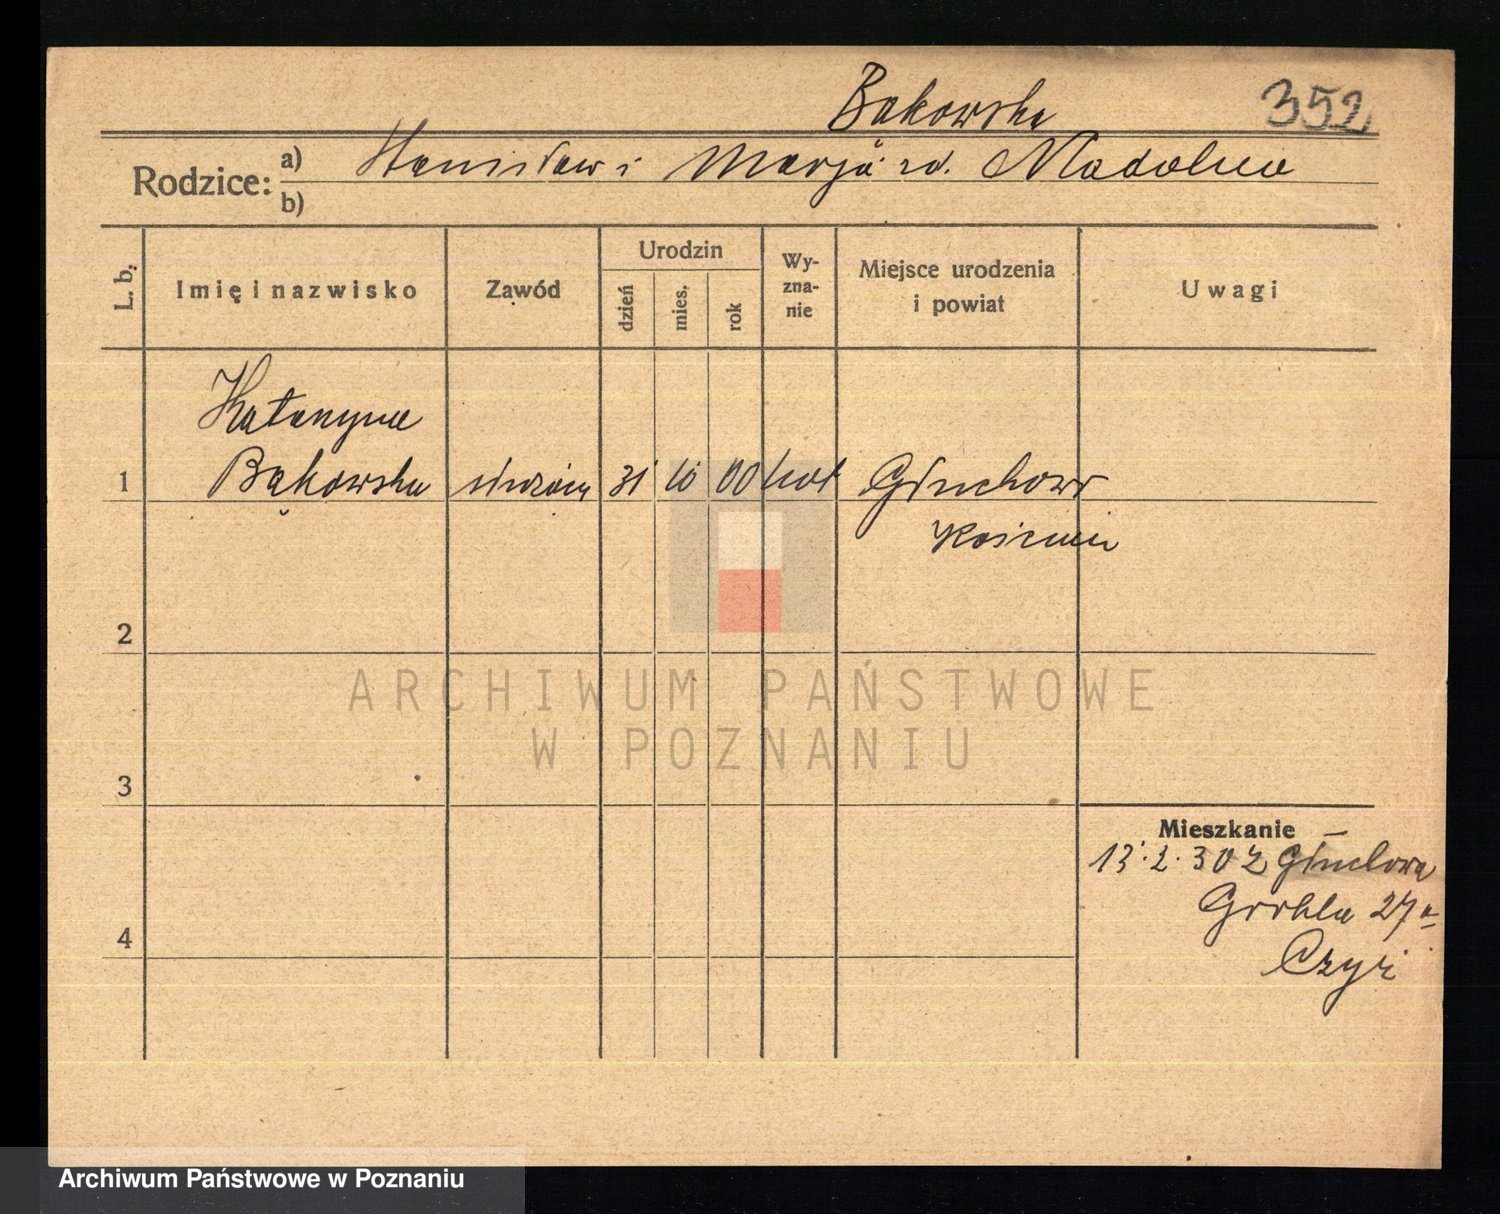 Bąkowska 352
Rodzice: a) Stanisław i Marja zd. Nadolna
b)
L. b. Imię i nazwisko Zawód Urodzin dzień mies. rok Wyznanie Miejsce urodzenia i powiat Uwagi
Katarzyna
1 Bąkowska służąca 31 10 00 kat Głuchowo
Kościan
2
ARCHIWUM PAŃSTWOWE
W POZNANIU
3
Mieszkanie
13.2.30 z Głuchowa
Grobla 27a
Czyż
4
Archiwum Państwowe w Poznaniu